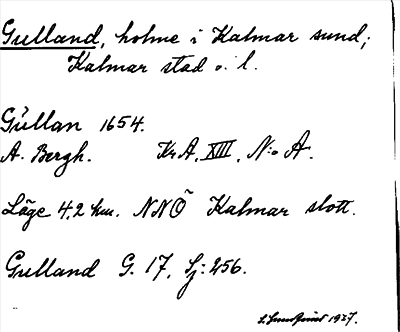 Gulland, holme i Kalmar sund;
Kalmar stad o. l.
Gullan 1654.
A. Bergh. KrA, XIII, N:o A.
Läge 4,2 km. NNÖ Kalmar slott.
Gulland G. 17, Sj: 256.
1927.